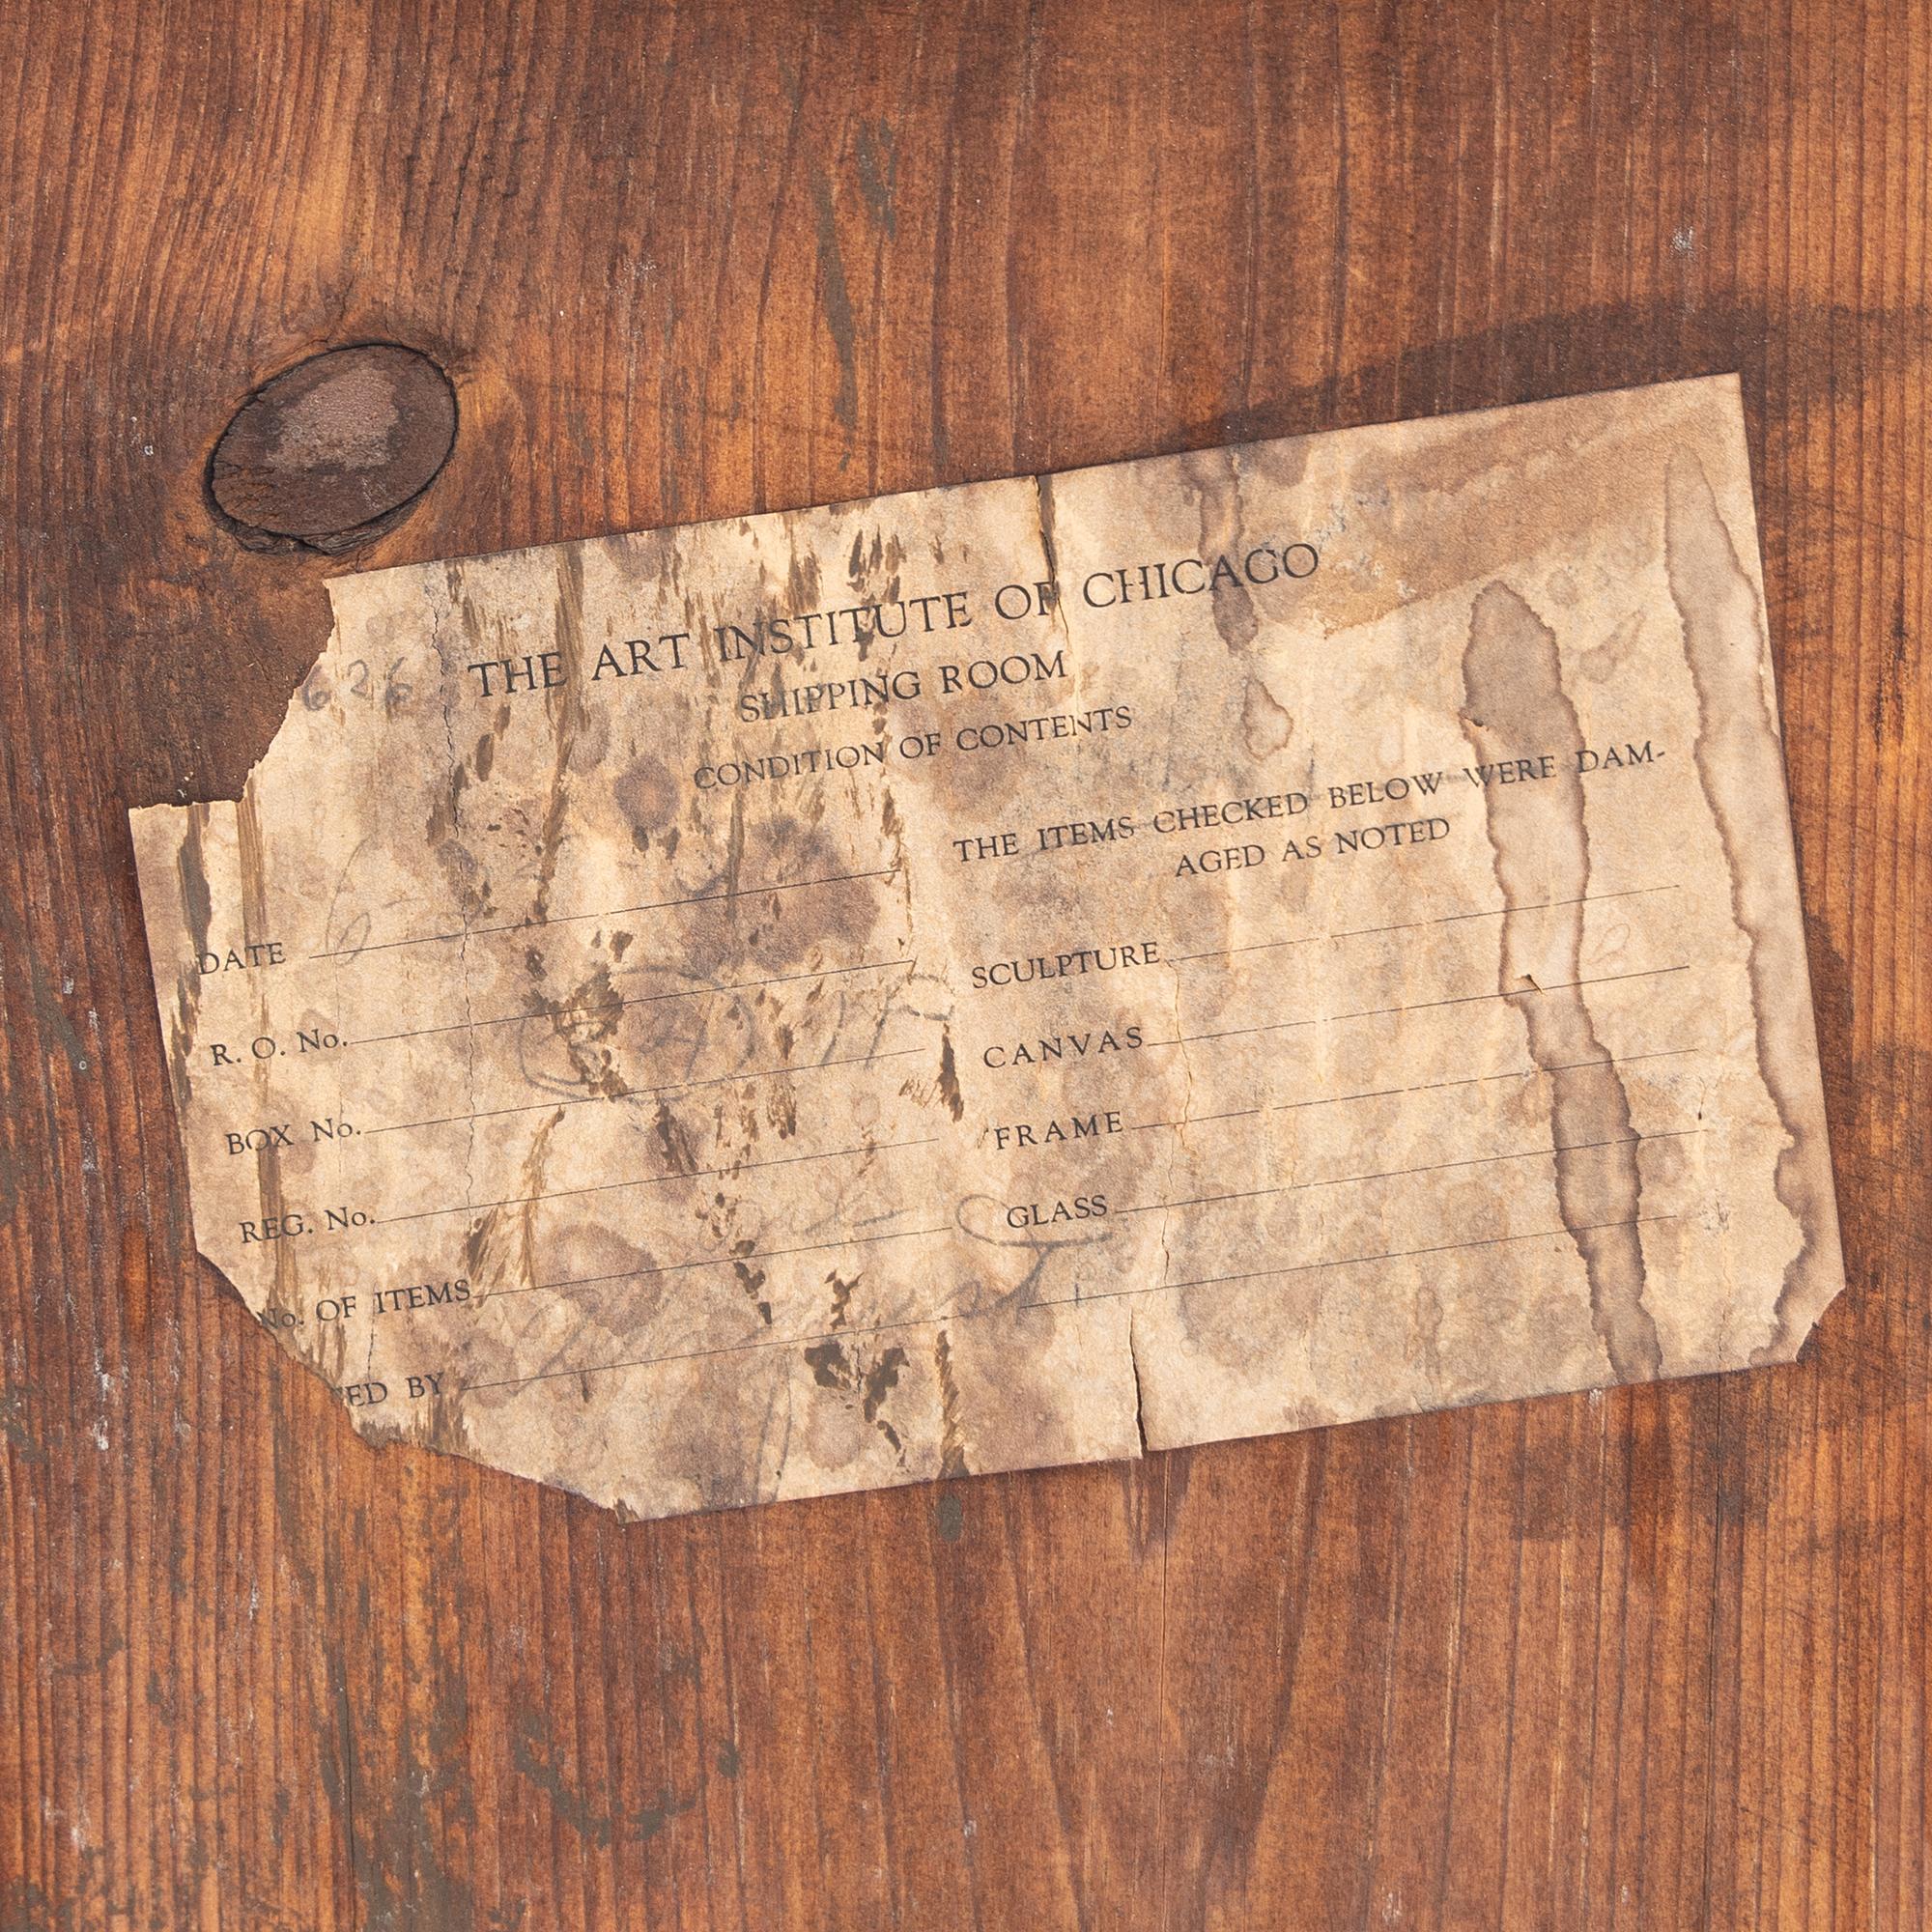 THE ART INSTITUTE OF CHICAGO
626
SHIPPING ROOM
CONDITION OF CONTENTS
THE ITEMS CHECKED BELOW WERE DAM-
AGED AS NOTED
DATE
R. O. No.
BOX No.
REG. No.
No. OF ITEMS
ED BY
SCULPTURE
CANVAS
FRAME
GLASS